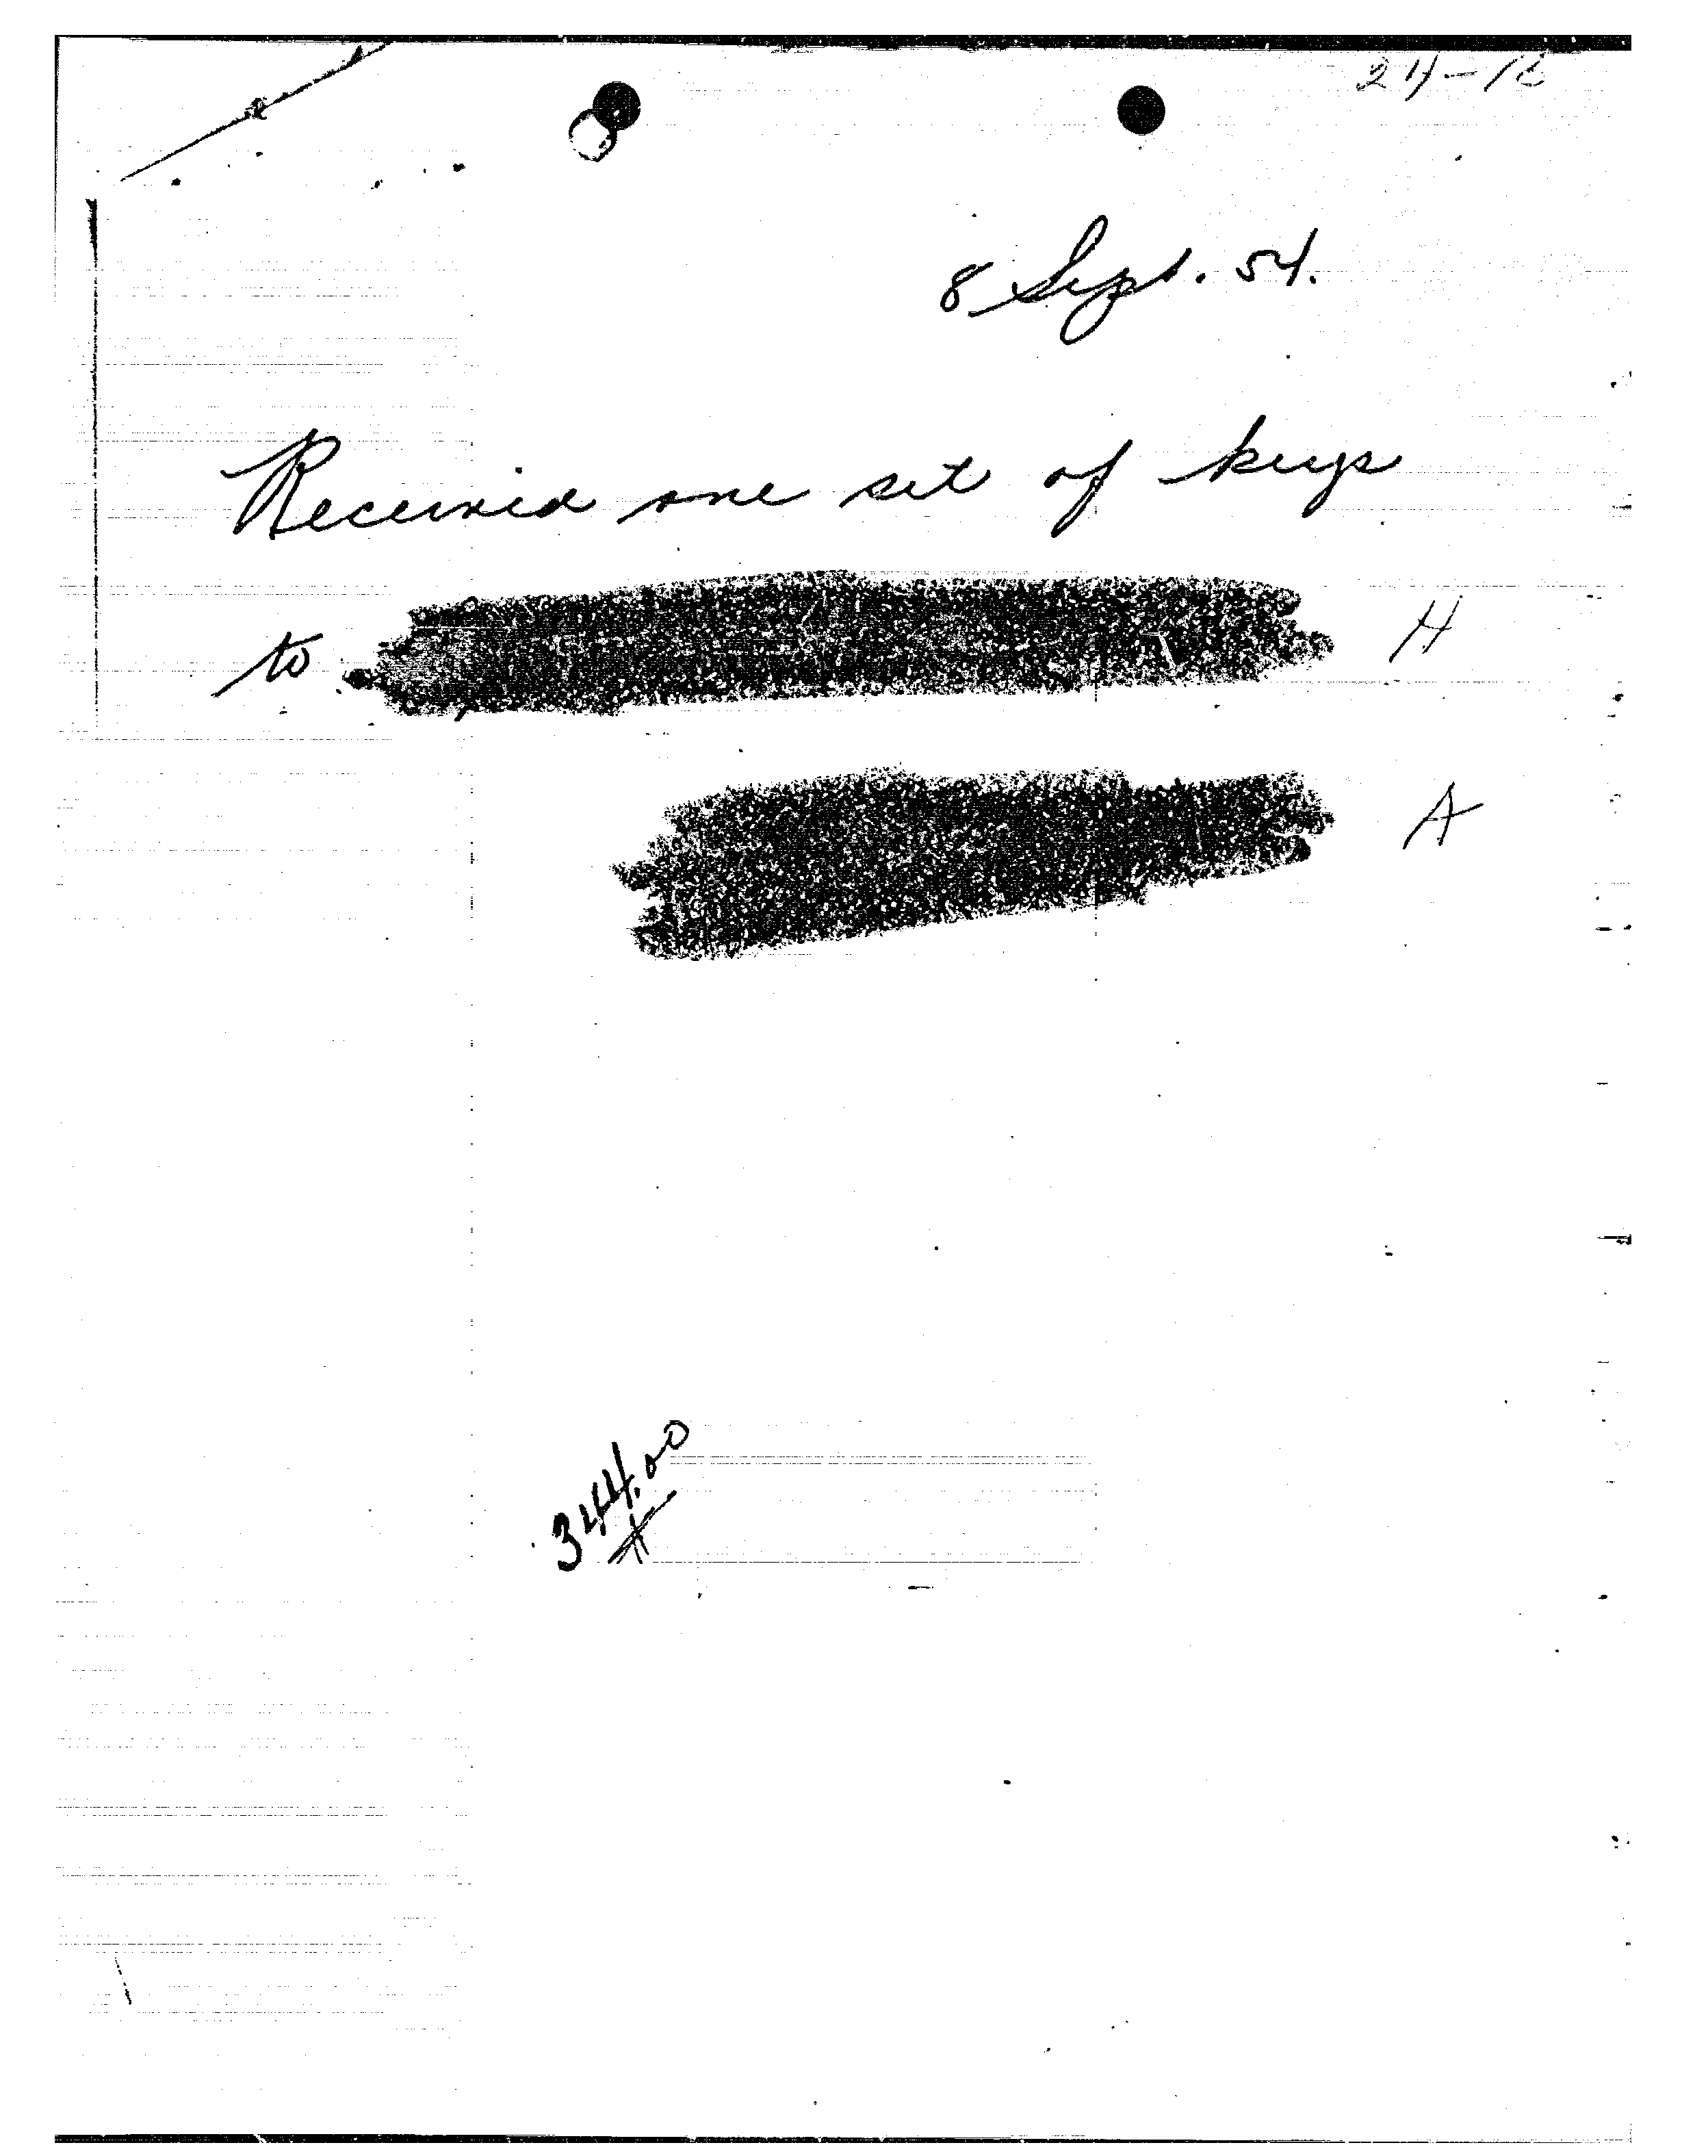 8 Sept. 54.
Received one set of keys
to H
A
344.00